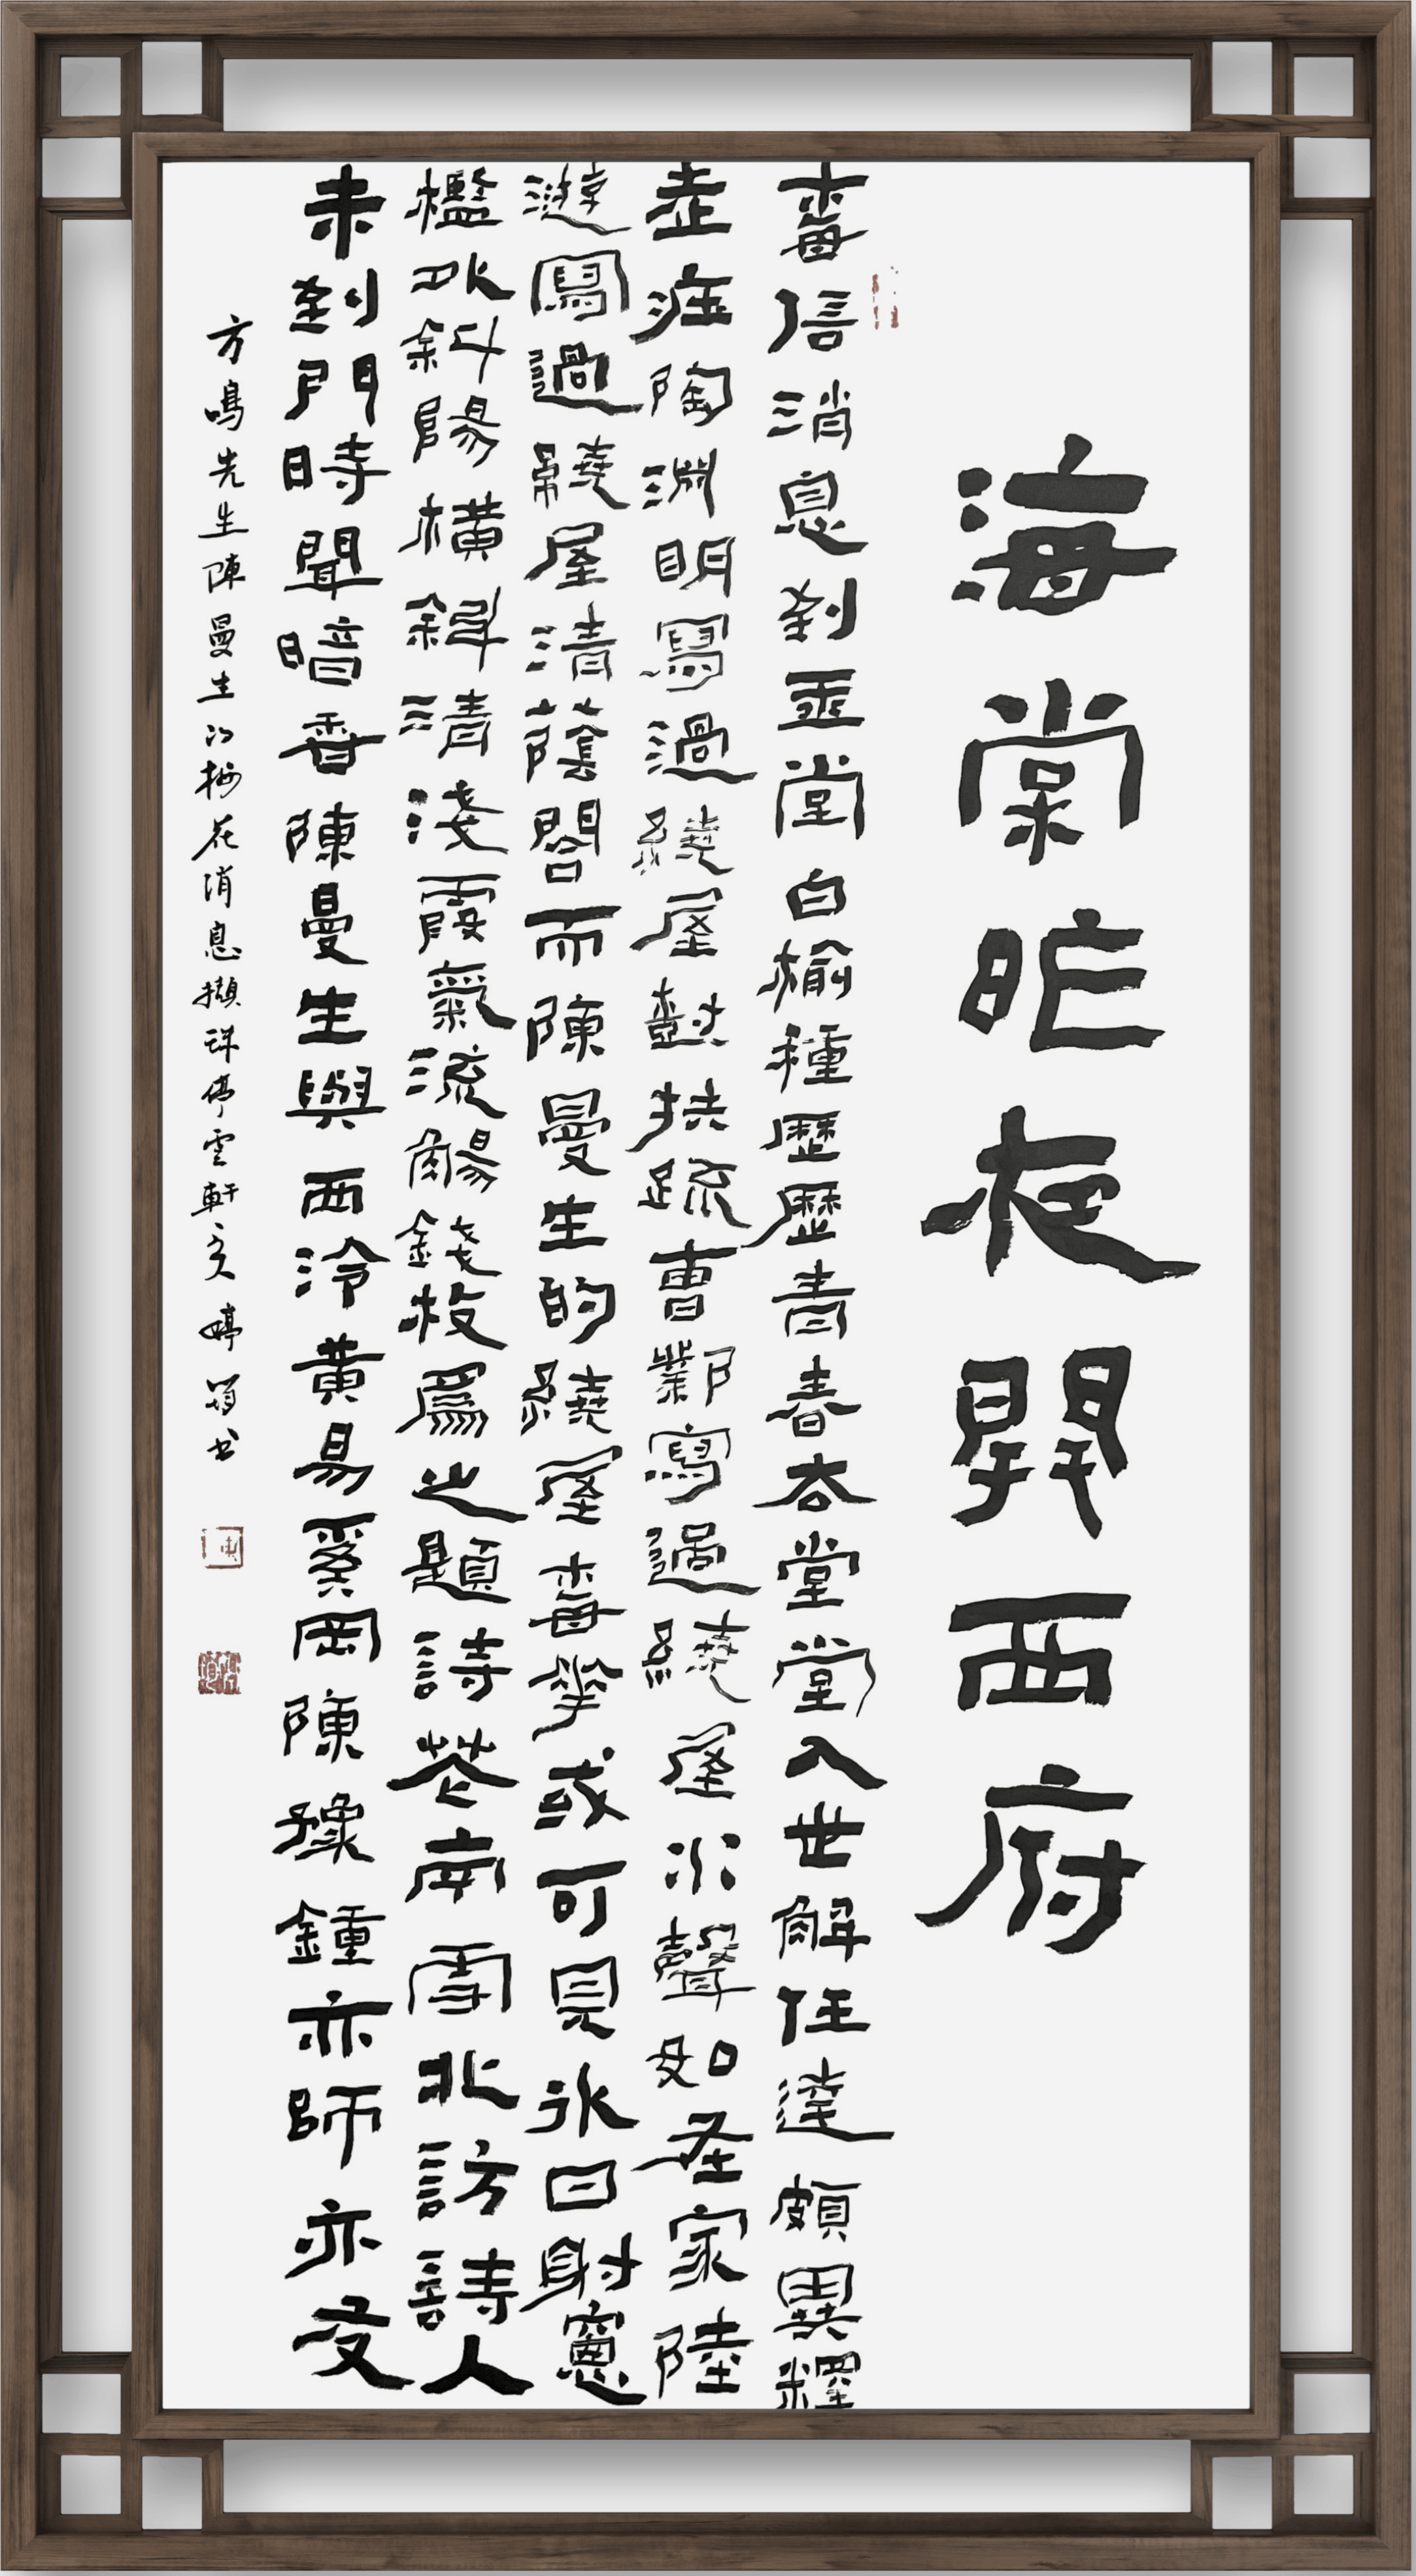 海棠昨夜開西府
梅信消息到堂白榆種歷歷青春去堂堂入世解任達頗異釋
老莊陶淵明寫過繞屋樹扶疏曹鄴寫過繞屋水聲如在家陸
游寫過繞屋清蔭閤而陳曼生的繞屋梅華或可見冰日射窗
檻以斜陽橫斜清淺霞氣流觴錢枚爲之題詩花南雪北訪詩人
未到門時聞暗香陳曼生與西泠黃易奚岡陳豫鍾亦師亦友
方鳴先生陳曼生的梅花消息擷停雲軒婷书